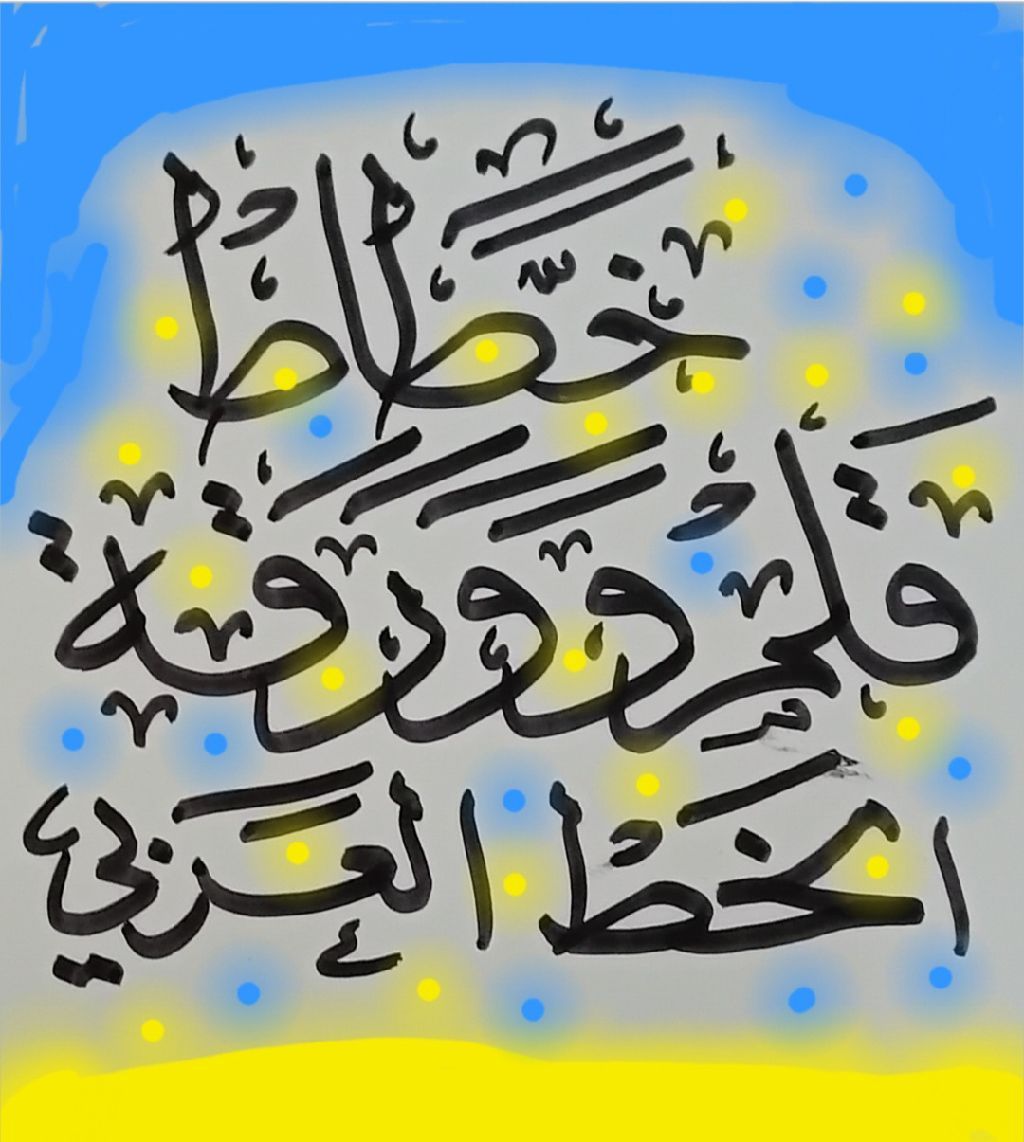 خطّاط
قلم وورقة
الخط العربي